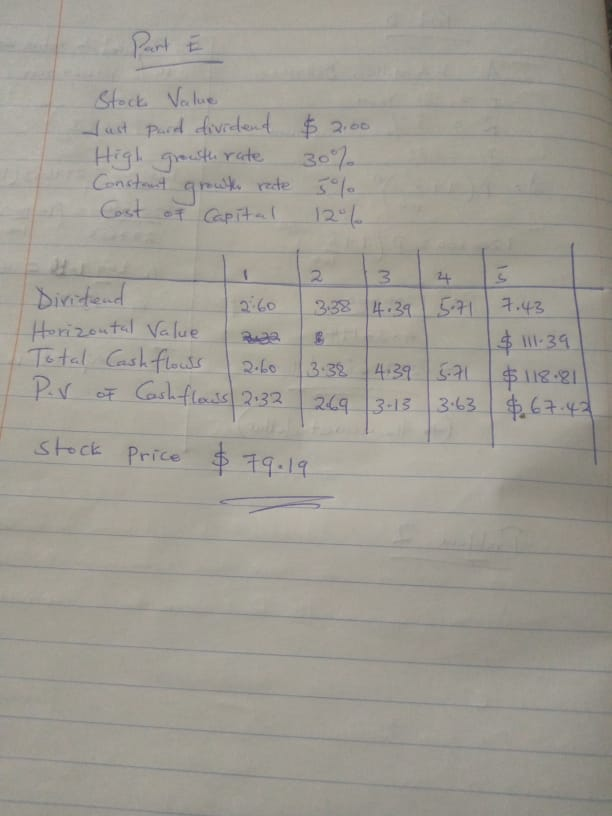 Part E
Stock Value
Just paid dividend $ 2.00
High growth rate 30%
Constant growth rate 5%
Cost of Capital 12%
1 2 3 4 5
Dividend 2.60 3.38 4.39 5.71 7.43
Horizontal Value $ 111.39
Total Cashflows 2.60 3.38 4.39 5.71 $ 118.81
P.V of Cashflows 2.32 2.69 3.13 3.63 $ 67.42
Stock Price $ 79.19